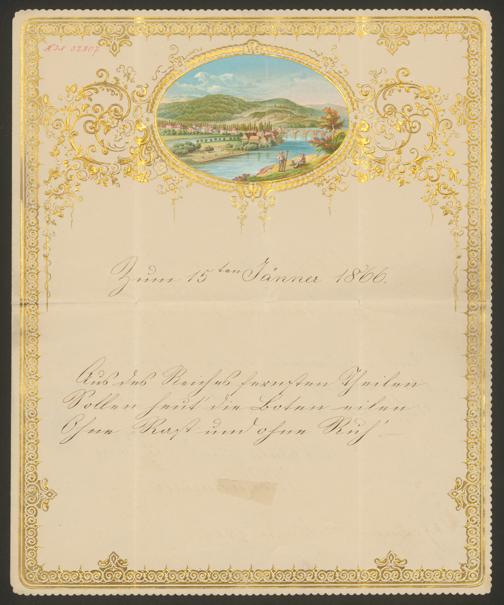 Zum 15ten Jänner 1866.
Aus des Reiches fernsten Theilen
Sollen heut die Boten eilen
Ohne Rast und ohne Ruh'